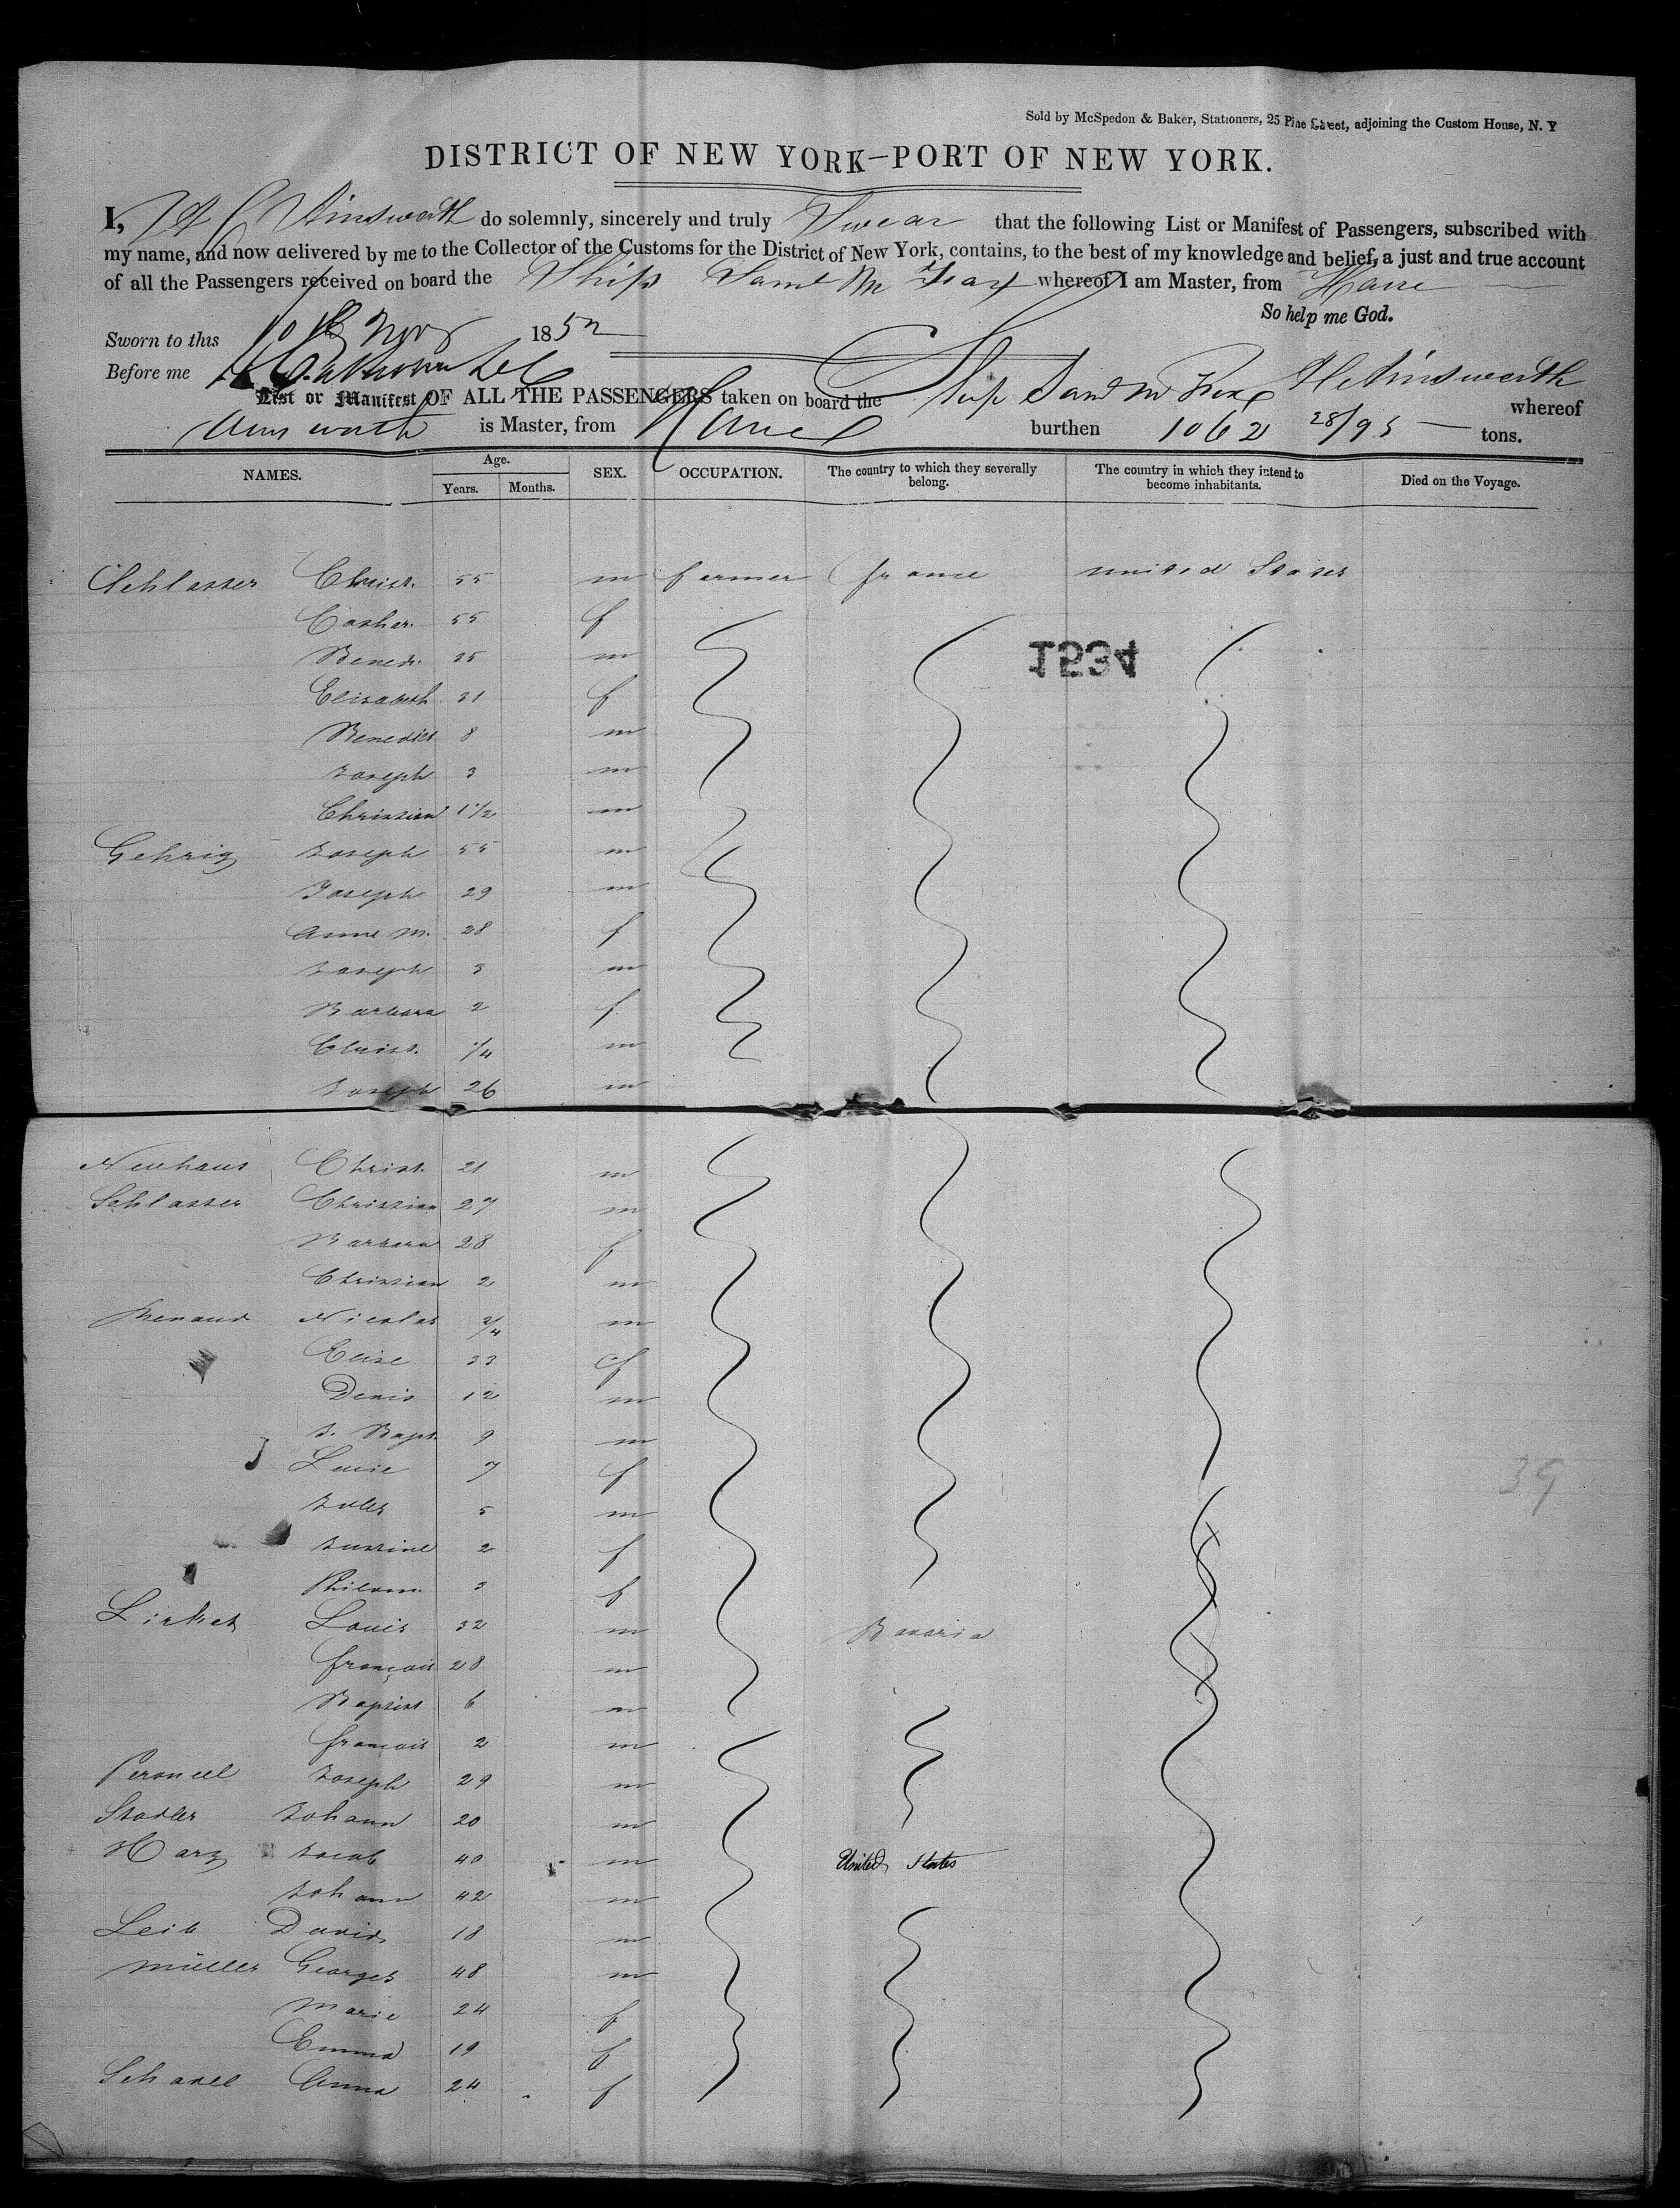 Sold by McSpedon & Baker, Stationers, 25 Pine Street, adjoining the Custom House, N. Y
DISTRICT OF NEW YORK–PORT OF NEW YORK.
I, Ainsworth do solemnly, sincerely and truly Swear that the following List or Manifest of Passengers, subscribed with
my name, and now delivered by me to the Collector of the Customs for the District of New York, contains, to the best of my knowledge and belief, a just and true account
of all the Passengers received on board the Ship Saml M Fox whereof I am Master, from Havre
So help me God.
Sworn to this 10th Novr 1852
Before me
Ainsworth
List or Manifest OF ALL THE PASSENGERS taken on board the Ship Saml M Fox whereof
Ainsworth is Master, from Havre burthen 1062 28/95 tons.
NAMES. Age. SEX. OCCUPATION. The country to which they severally belong. The country in which they intend to become inhabitants. Died on the Voyage.
Years. Months.
Schlasser Christ. 55 m farmer france united States
55 f
1534
Bened. 35 m
Elisabeth 31 f
Benedict 8 m
Joseph 3 m
Christian 1 1/2 m
Gehrig Joseph 55 m
Joseph 29 m
Anne M. 28 f
Joseph 3 m
Barbara 2 f
Christ. 1/4 m
Joseph 26 m
Neuhaus Christ. 21 m
Schlasser Christian 27 m
Barbara 28 f
Christian 2 m
Renaud Nicolas m
Elise 33 f
Denis 12 m
J. Bapt. 9 m
Lucie 7 f
39
Jules 5 m
Justine 2 f
Philom. 3 f
Louis 32 m Bavaria
françois 28 m
Baptist 6 m
françois 2 m
Joseph 29 m
Stadler Johann 20 m
Harz Jacob 40 m United States
Johann 42 m
Leib David 18 m
müller Georges 48 m
Marie 24 f
Emma 19 f
Anna 24 f